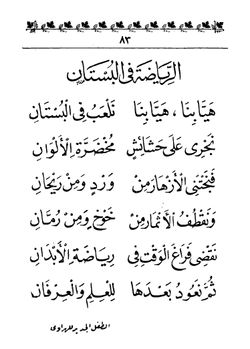 ٨٣
الرِّيَاضَة فى البُسْتَان
هَيَّا بِنَا ، هَيَّا بِنَا نَلْعَبُ فِى الْبُسْتَانِ
نَجْرِى عَلَى حَشَائِشٍ مُخْضَرَّةِ الْأَلْوَانِ
فَنَجْتَنِى الْأَزْهَارَ مِنْ وَرْدٍ وَمِنْ رَيْحَانِ
وَنَقْطُفُ الْأَثْمَارَ مِنْ خَوْخٍ وَمِنْ رُمَّانِ
نَقْضِى فَرَاغَ الْوَقْتِ فِى رِيَاضَةِ الْأَبْدَانِ
ثُمَّ نَعُودُ بَعْدَهَا لِلْعِلْمِ وَالْعِرْفَانِ